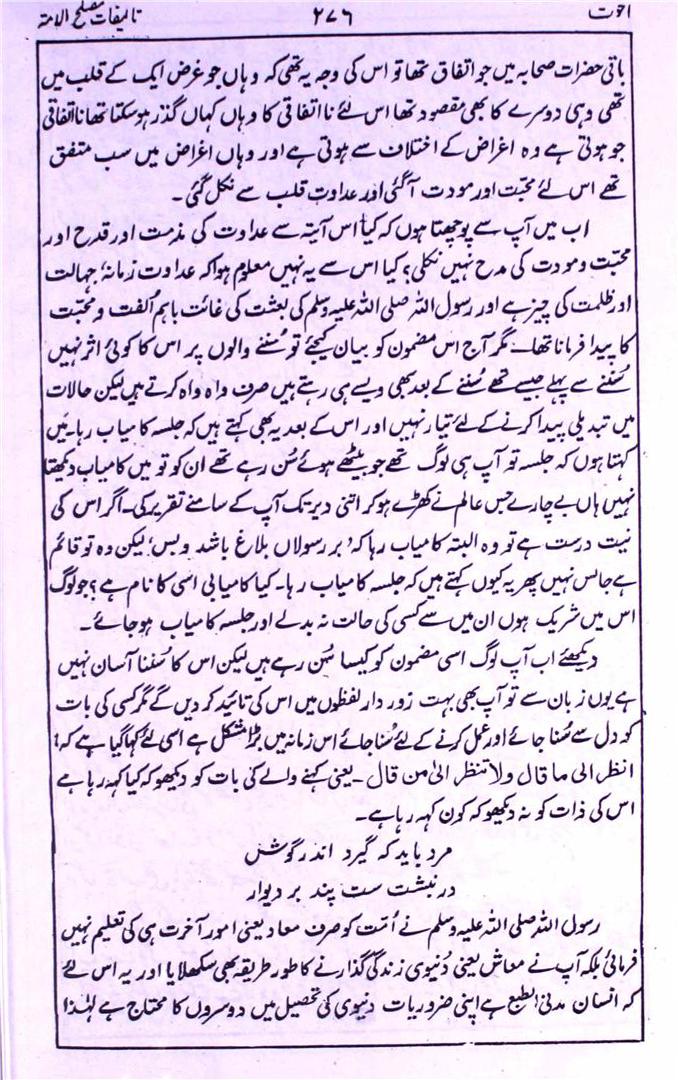 اخوت ۲۷۶ تالیفات مصلح الامتؒ
باقی حضرات صحابہ میں جو اتفاق تھا تو اس کی وجہ یہ تھی کہ وہاں جو غرض ایک کے قلب میں
تھی وہی دوسرے کا بھی مقصود تھا اس لئے نا اتفاقی کا وہاں کہاں گذر ہو سکتا تھا نا اتفاقی
جو ہوتی ہے وہ اغراض کے اختلاف سے ہوتی ہے اور وہاں اغراض میں سب متفق
تھے اس لئے محبّت اور مودت آگئی اور عداوت قلب سے نکل گئی۔
اب میں آپ سے پوچھتا ہوں کہ کیا اس آیتہ سے عداوت کی مذمت اور قدح اور
محبّت و مودت کی مدح نہیں نکلی؟ کیا اس سے یہ نہیں معلوم ہوا کہ عداوت زمانۂ جہالت
اور ظلمت کی چیز ہے اور رسول اللہ صلی اللہ علیہ وسلم کی بعثت کی غائت باہم اُلفت و محبّت
کا پیدا فرمانا تھا۔ مگر آج اس مضمون کو بیان کیجئے تو سُننے والوں پر اس کا کوئی اثر نہیں
سُننے سے پہلے جیسے تھے سُننے کے بعد بھی ویسے ہی رہتے ہیں صرف واہ واہ کرتے ہیں لیکن حالات
میں تبدیلی پیدا کرنے کے لئے تیار نہیں اور اس کے بعد یہ بھی کہتے ہیں کہ جلسہ کامیاب رہا۔ میں
کہتا ہوں کہ جلسہ تو آپ ہی لوگ تھے جو بیٹھے ہوئے سُن رہے تھے ان کو تو میں کامیاب دیکھتا
نہیں ہاں بے چارے جس عالم نے کھڑے ہو کر اتنی دیر تک آپ کے سامنے تقریر کی۔ اگر اس کی
نیت درست ہے تو وہ البتہ کامیاب رہا کہ ؏ بر رسولاں بلاغ باشد و بس؛ لیکن وہ تو قائم
ہے جالس نہیں پھر یہ کیوں کہتے ہیں کہ جلسہ کامیاب رہا۔ کیا کامیابی اسی کا نام ہے؟ جو لوگ
اس میں شریک ہوں ان میں سے کسی کی حالت نہ بدلے اور جلسہ کامیاب ہو جائے۔
دیکھئے اب آپ لوگ اسی مضمون کو کیسا سُن رہے ہیں لیکن اس کا سُننا آسان نہیں
ہے یوں زبان سے تو آپ بھی بہت زور دار لفظوں میں اس کی تائید کر دیں گے مگر کسی کی بات
کو دل سے سُنا جائے اور عمل کرنے کے لئے سُنا جائے اس زمانہ میں بڑا مشکل ہے اسی لئے کہا گیا ہے کہ:
انظر الی ما قال ولا تنظر الیٰ من قال۔ یعنی کہنے والے کی بات کو دیکھو کہ کیا کہہ رہا ہے
اس کی ذات کو نہ دیکھو کہ کون کہہ رہا ہے۔
مرد باید کہ گیرد اندر گوش
در نبشت ست پند بر دیوار
رسول اللہ صلی اللہ علیہ وسلم نے اُمّت کو صرف معاد یعنی امور آخرت ہی کی تعلیم نہیں
فرمائی بلکہ آپ نے معاش یعنی دُنیوی زندگی گذارنے کا طور طریقہ بھی سکھلایا اور یہ اس لئے
کہ انسان مدنی الطبع ہے اپنی ضروریات دنیوی کی تحصیل میں دوسروں کا محتاج ہے لہٰذا